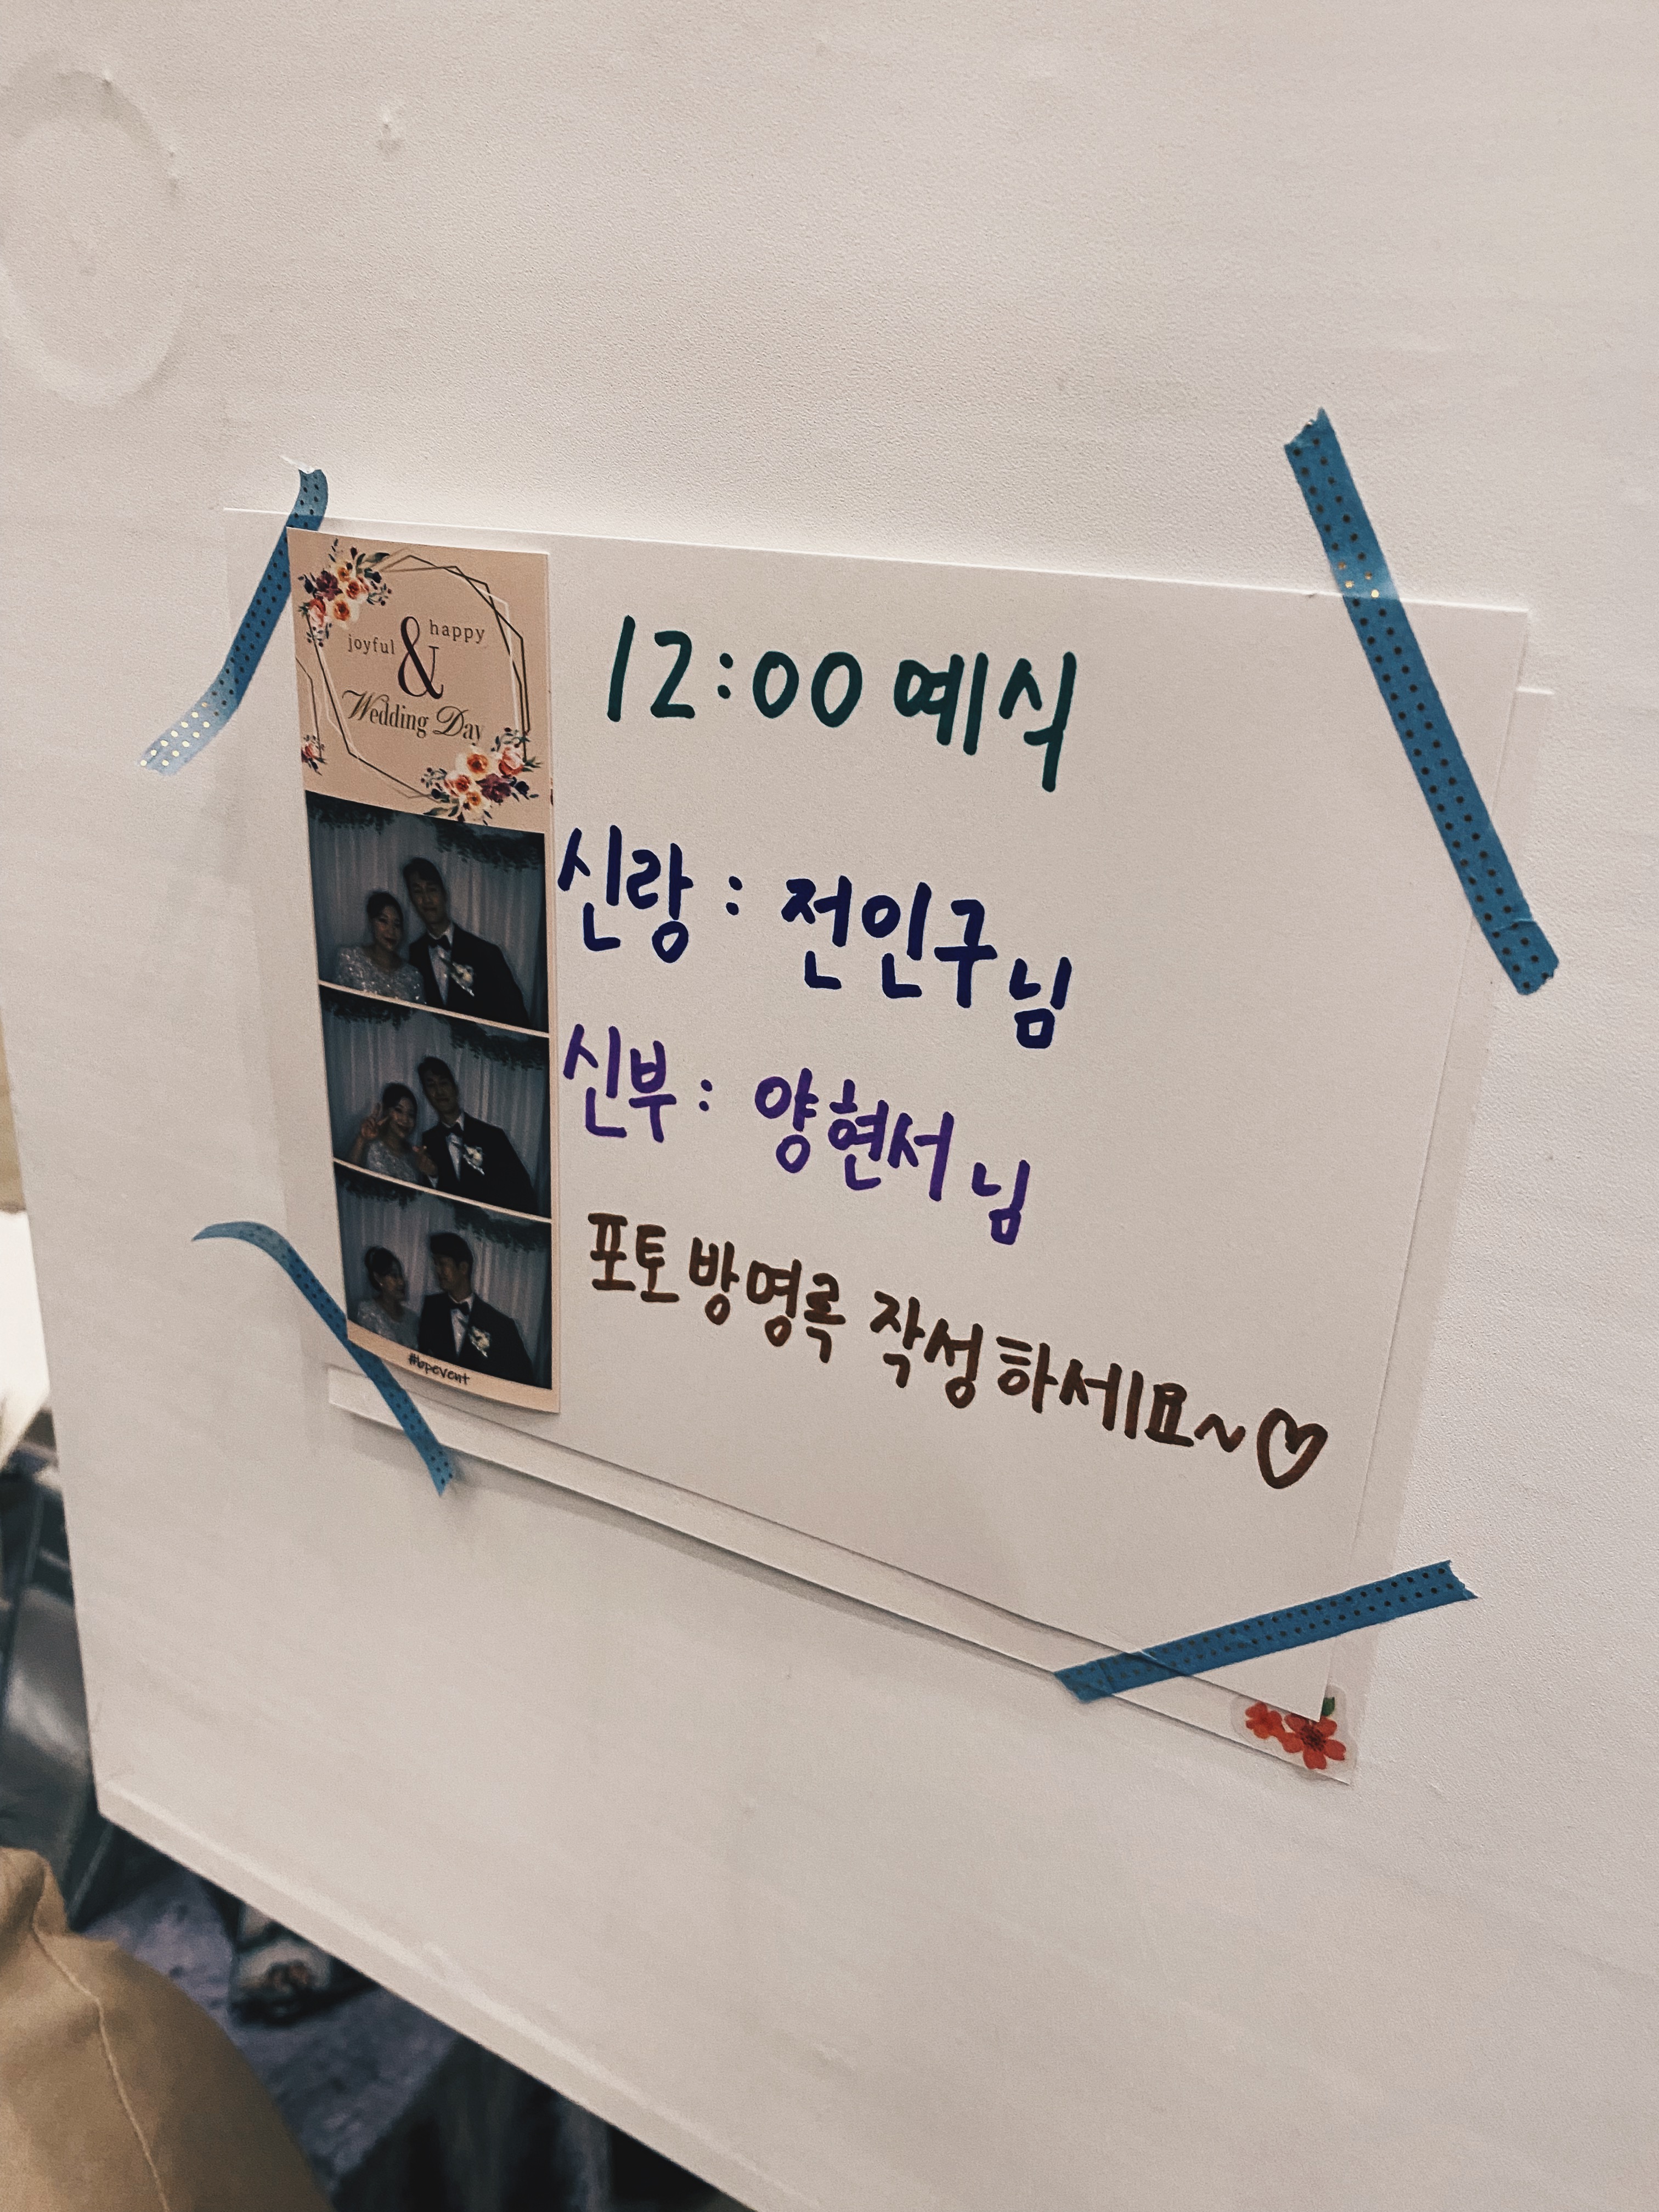 joyful & happy
Wedding Day
#bpevent
12:00 예식
신랑 : 전인구님
신부 : 양현서님
포토방명록 작성하세요~♡